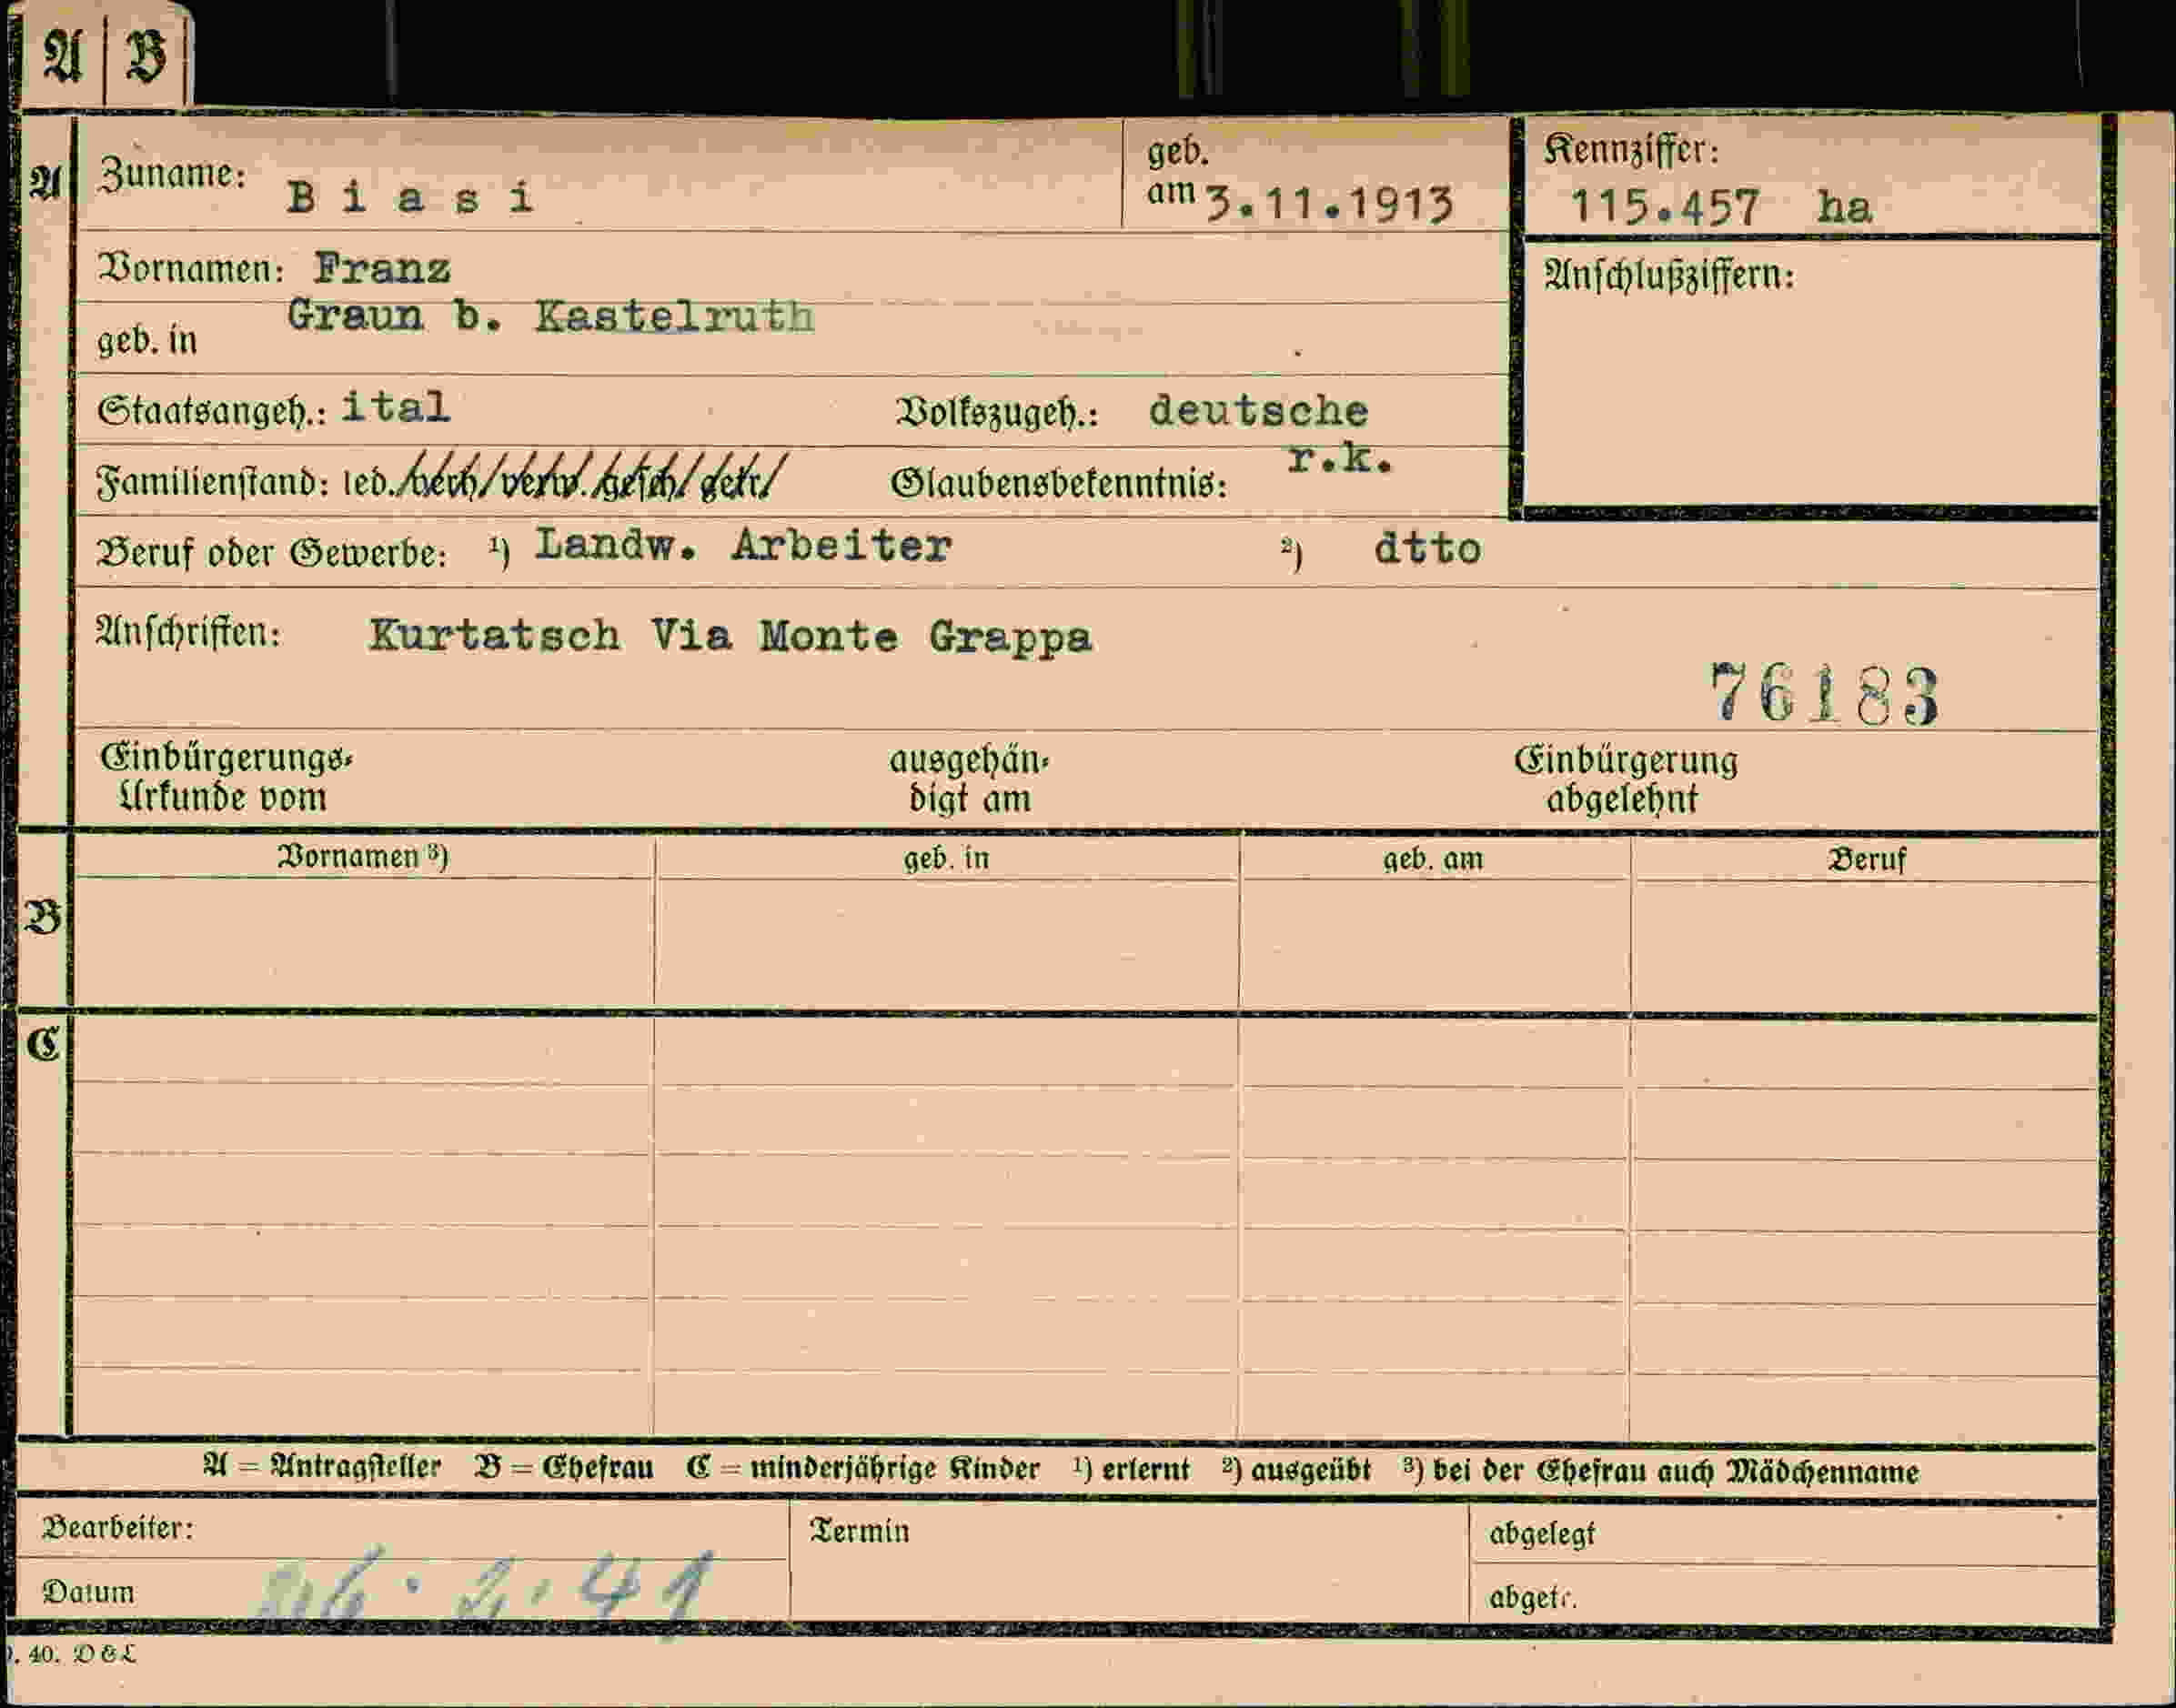 A B
A
Zuname: Biasi
geb. am 3.11.1913
Kennziffer: 115.457 ha
Vornamen: Franz
Anschlußziffern:
geb. in Graun b. Kastelruth
Staatsangeh.: ital Volkszugeh.: deutsche
Familienstand: led. verh. verw. gesch. getr. Glaubensbekenntnis: r.k.
Beruf oder Gewerbe: 1) Landw. Arbeiter 2) dtto
Anschriften: Kurtatsch Via Monte Grappa
76183
Einbürgerungs-
Urkunde vom
ausgehän-
digt am
Einbürgerung
abgelehnt
B
Vornamen 3) geb. in geb. am Beruf
C
A = Antragsteller B = Ehefrau C = minderjährige Kinder 1) erlernt 2) ausgeübt 3) bei der Ehefrau auch Mädchenname
Bearbeiter: Termin abgelegt
Datum 2.41 abgetr.
40. D & L